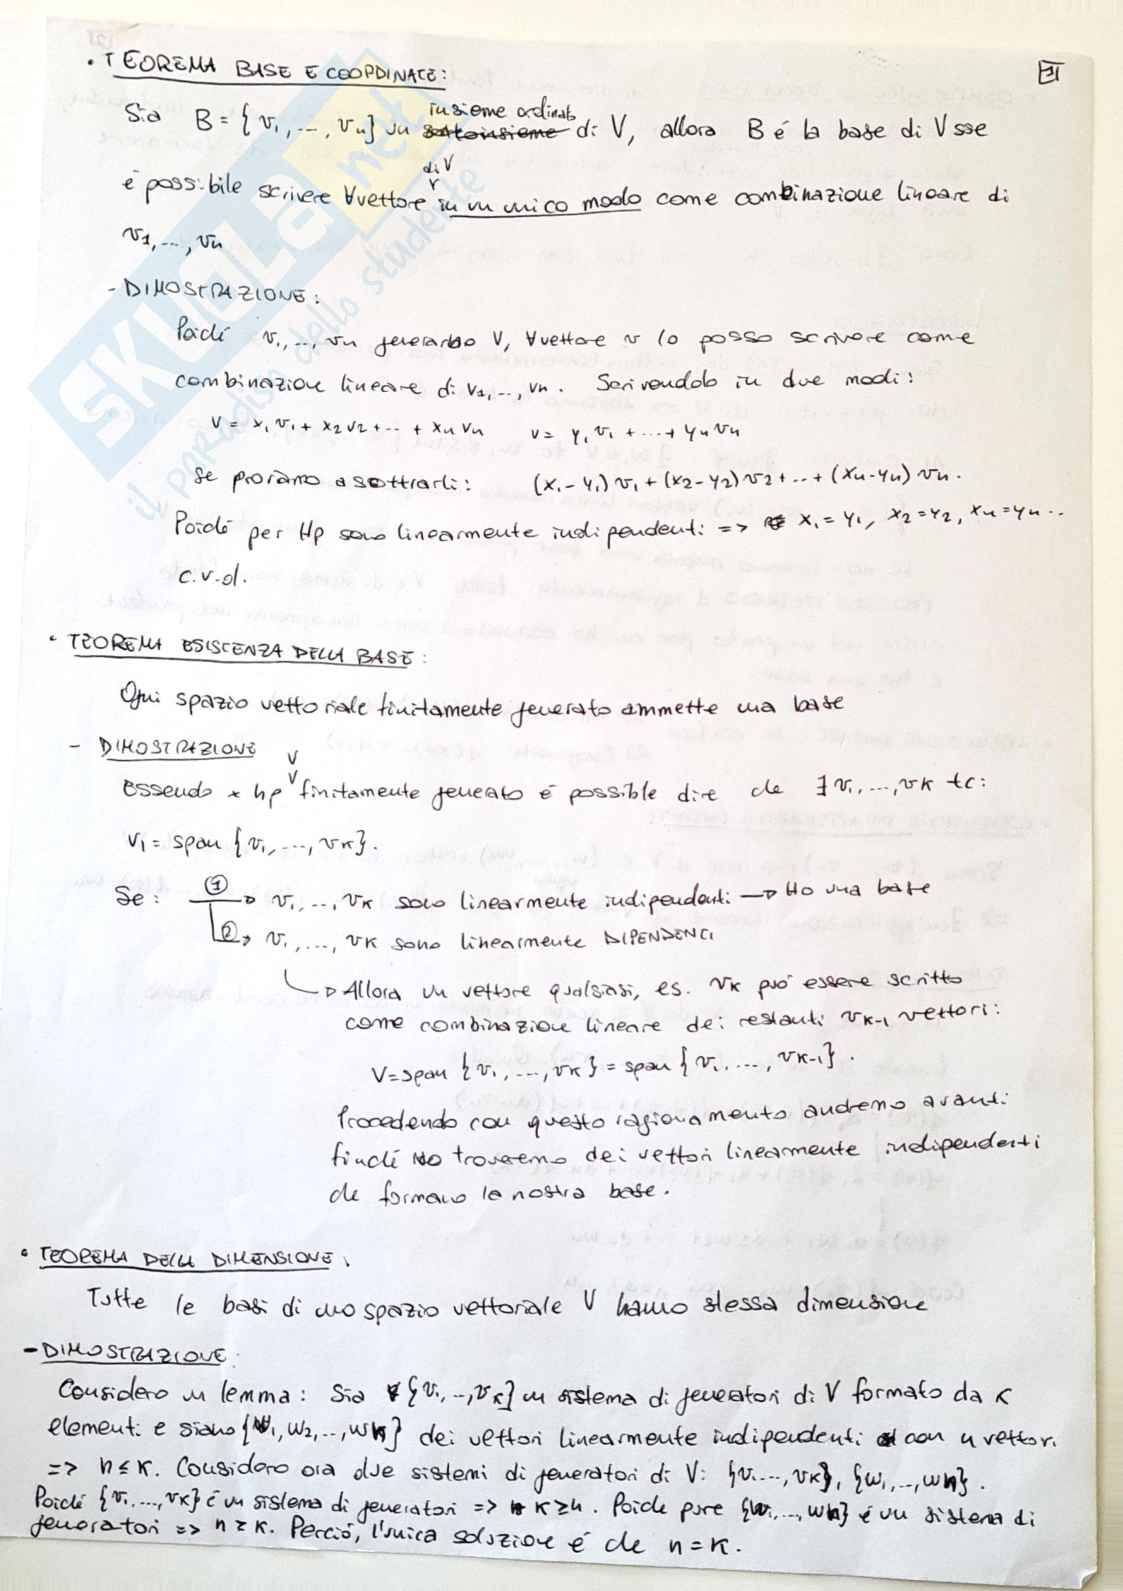 31
• TEOREMA BASE E COORDINATE:
Sia B = {v1, ..., vn} un sottoinsieme insieme ordinato di V, allora B é la base di V sse
é possibile scrivere ∀vettore di V in un unico modo come combinazione lineare di
v1, ..., vn
- DIMOSTRAZIONE:
Poiché v1, ..., vn generano V, ∀vettore v lo posso scrivere come
combinazione lineare di v1, ..., vn. Scrivendolo in due modi:
v = x1v1 + x2v2 + ... + xnvn v = y1v1 + ... + ynvn
Se proviamo a sottrarli: (x1-y1)v1 + (x2-y2)v2 + ... + (xn-yn)vn.
Poiché per Hp sono linearmente indipendenti => x1=y1, x2=y2, xn=yn ..
c.v.d.
• TEOREMA ESISTENZA DELLA BASE:
Ogni spazio vettoriale finitamente generato ammette una base
- DIMOSTRAZIONE
Essendo x hp V finitamente generato é possibile dire che ∃ v1, ..., vk tc:
V1 = span {v1, ..., vk}.
Se: ① → v1, ..., vk sono linearmente indipendenti → Ho una base
② → v1, ..., vk sono linearmente DIPENDENTI
→ Allora un vettore qualsiasi, es. vk puó essere scritto
come combinazione lineare dei restanti vk-1 vettori:
V = span {v1, ..., vk} = span {v1, ..., vk-1}.
Procedendo con questo ragionamento andremo avanti
finché no troveremo dei vettori linearmente indipendenti
che formano la nostra base.
• TEOREMA DELLA DIMENSIONE.
Tutte le basi di uno spazio vettoriale V hanno stessa dimensione
- DIMOSTRAZIONE:
Considero un lemma: Sia {v1, .., vk} un sistema di generatori di V formato da K
elementi e siano {w1, w2, .., wn} dei vettori linearmente indipendenti con n vettori
=> n ≤ k. Considero ora due sistemi di generatori di V: {v1, ..., vk}, {w1, .., wn}.
Poiché {v1, ..., vk} é un sistema di generatori => k ≥ n. Poiche pure {w1, ..., wn} é un sistema di
generatori => n ≥ k. Perció, l'unica soluzione é che n = k.
SKUOLA.net
il paradiso dello studente